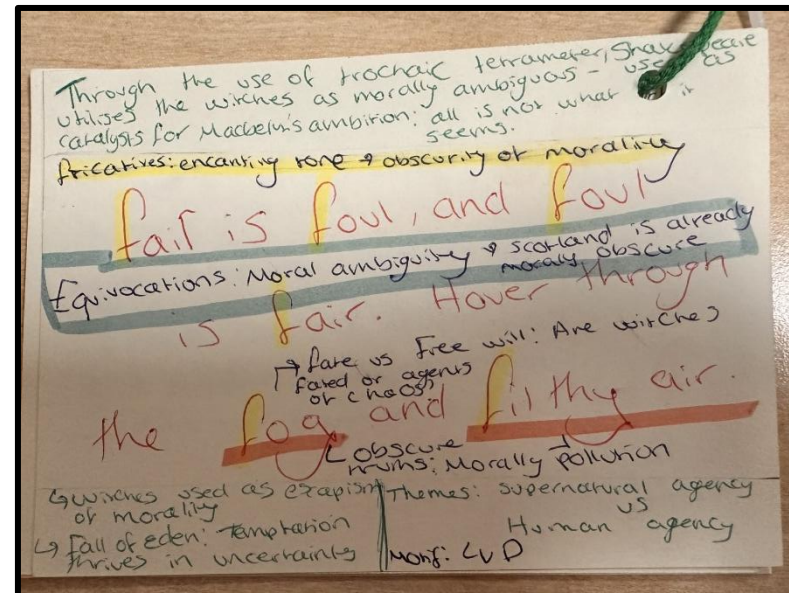 Through the use of trochaic terrameter, Shakespeare
utilises the witches as morally ambiguous - used as
catalysts for Macbeth's ambition: all is not what it
seems.
fricatives: encanting tone → obscurity of morality
fair is foul, and foul
Equivocations: Moral ambiguity → scotland is already
moraly obscure
is fair. Hover through
→ fate vs Free will: Are witches
fated or agents
of chaos
the fog and filthy air.
obscure
truths: Morally pollution
↳ witches used as
of morality
↳ Fall of eden: Temptation
thrives in uncertainty
Themes: supernatural agency
vs
Human agency
Motif: LVD